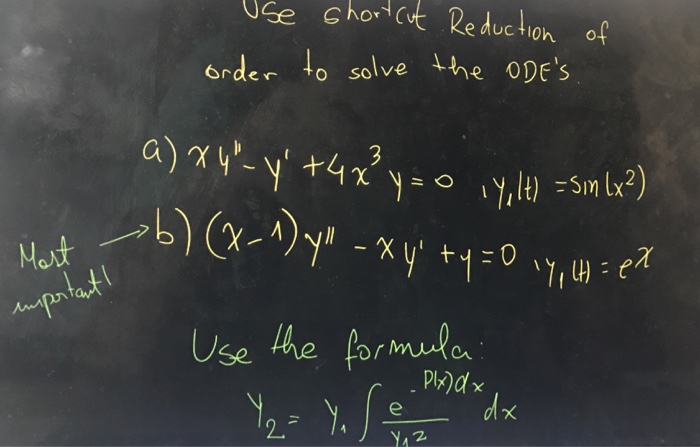 Use shortcut Reduction of
order to solve the ODE's.
a) xy'' - y' + 4x³y = 0 , y₁(t) = sin(x²)
Most → b) (x-1)y'' - xy' + y = 0 , y₁(t) = eˣ
important!
Use the formula:
y₂ = y₁ ∫ e^(-P(x)dx) / y₁² dx